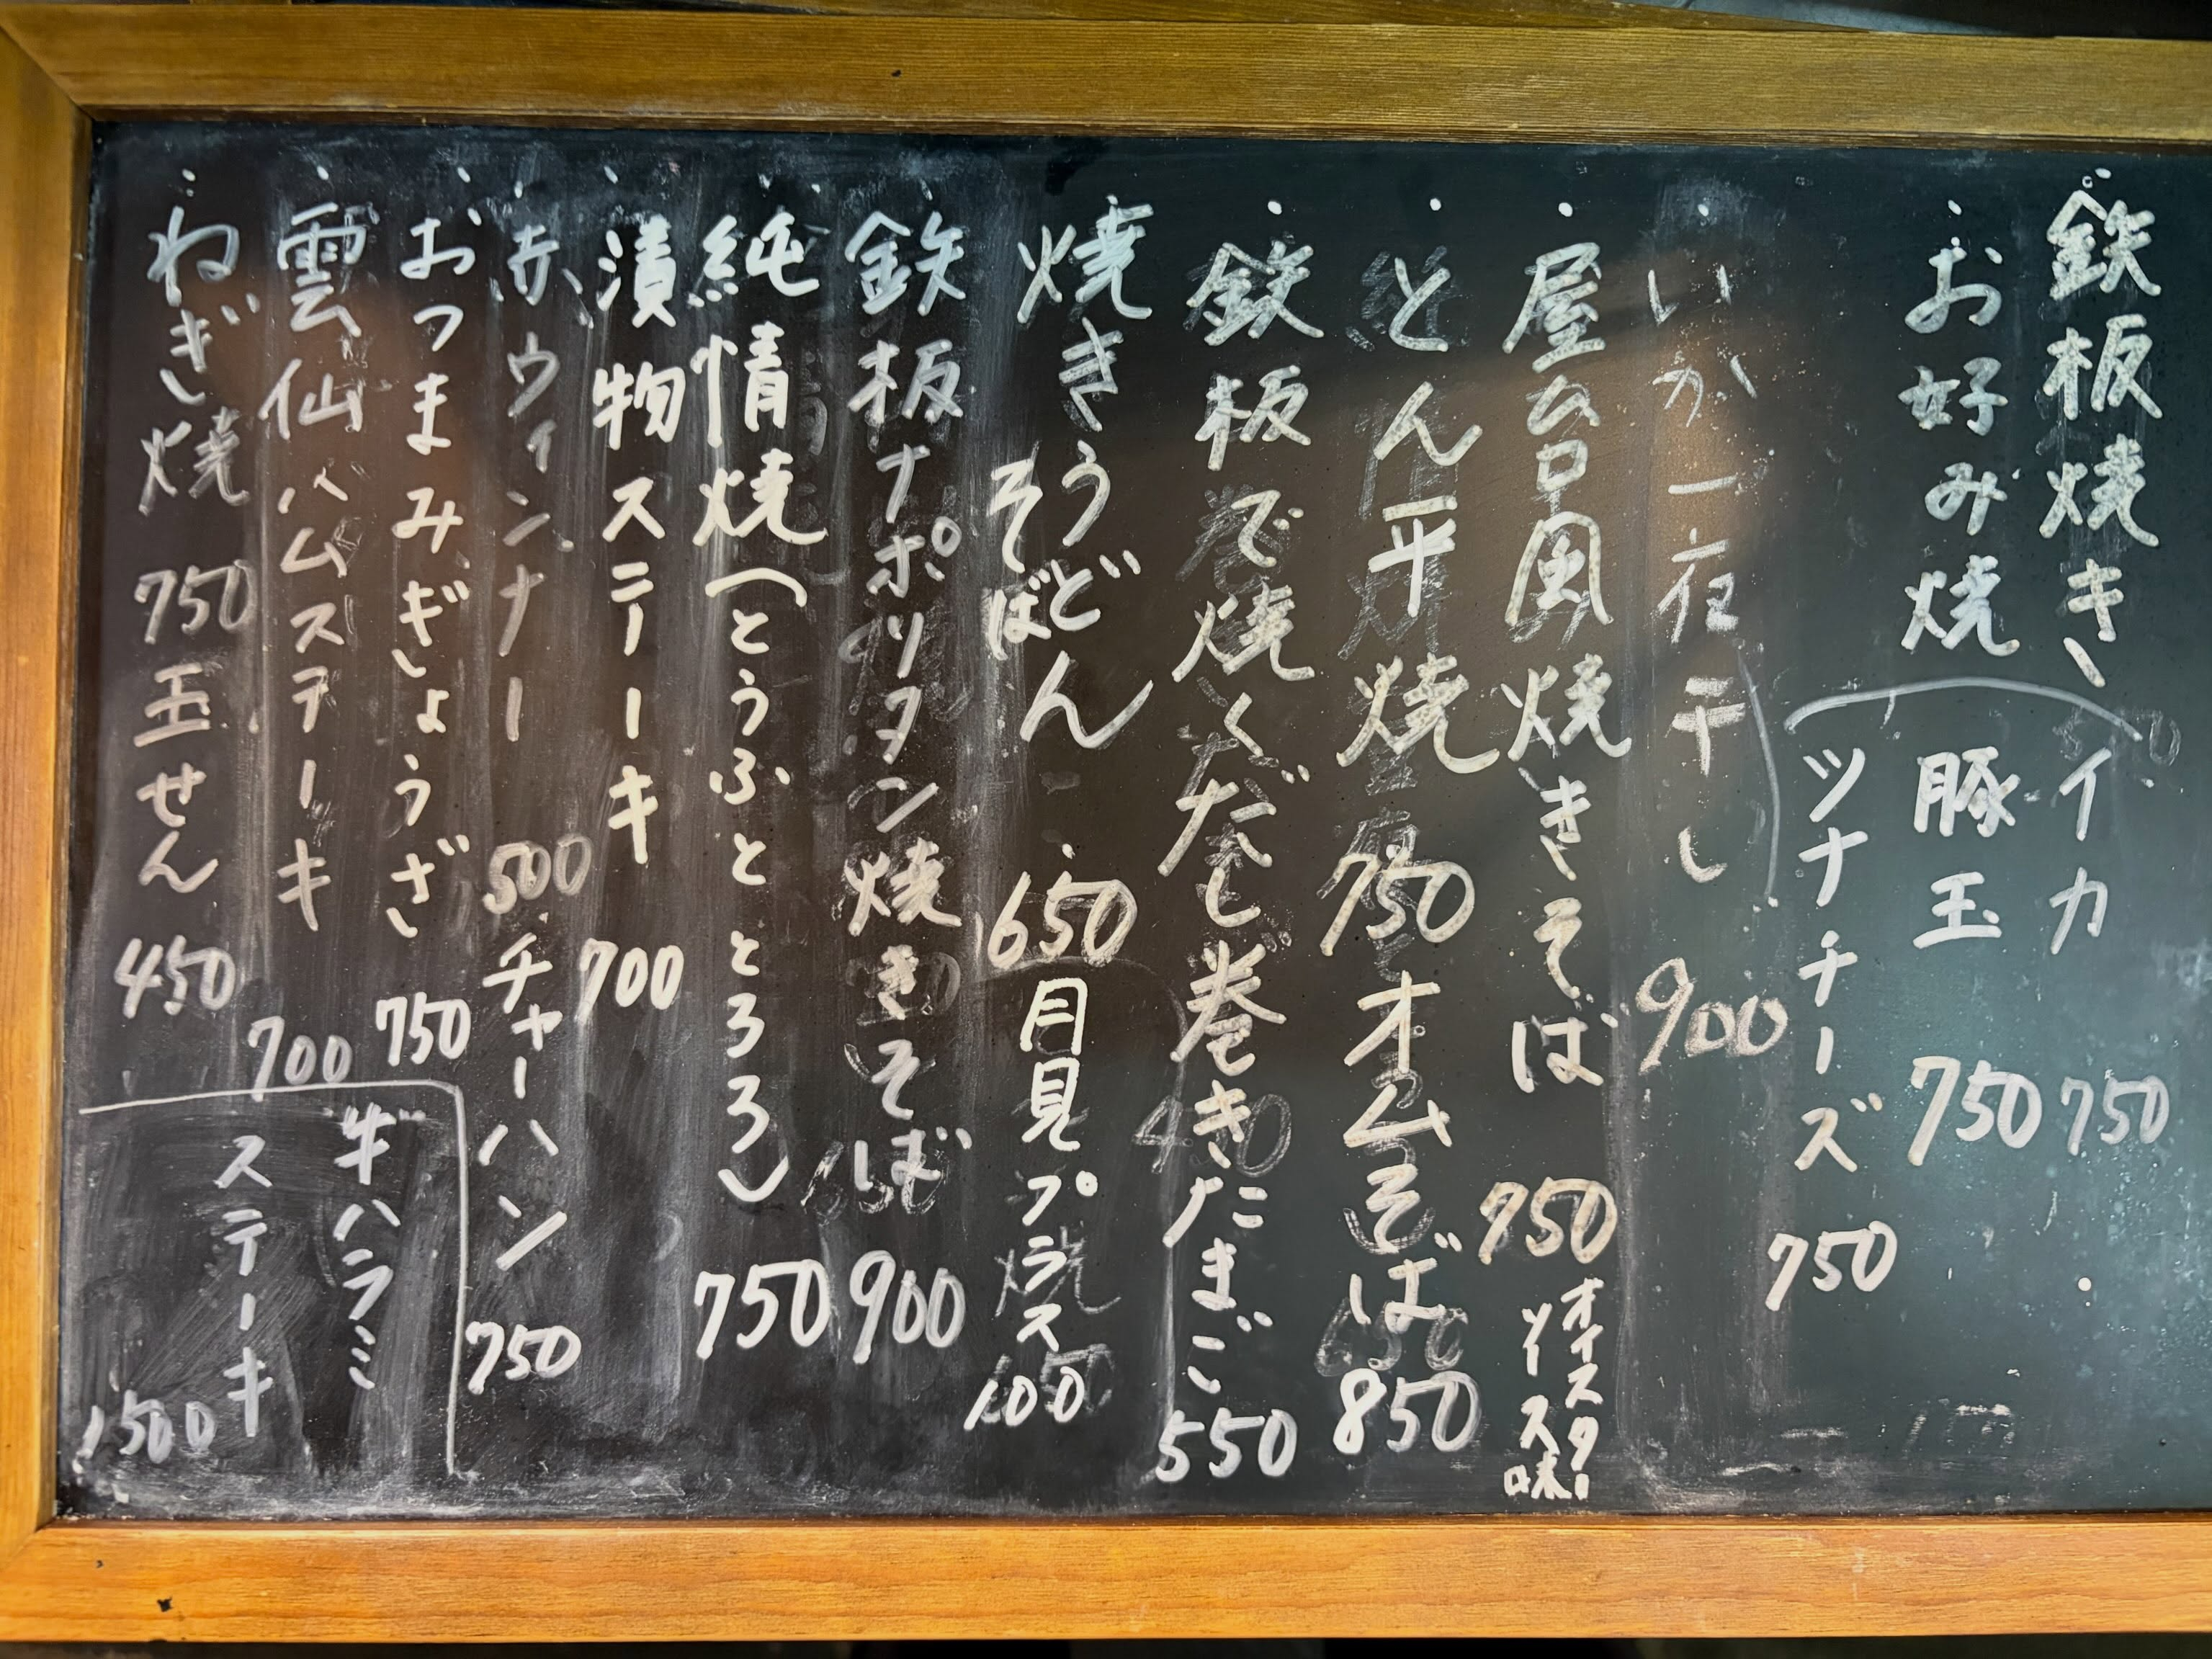 鉄板焼き
お好み焼
イカ 750
豚玉 750
ツナチーズ 750
いか一夜干し 900
屋台風焼きそば 750
オイスター
ソース味
とん平焼 750
オムそば 850
鉄板で焼くだし巻きたまご 550
焼きうどん
そば
650
月見プラス 100
鉄板ナポリタン焼きそば 900
純情焼(とうふととろろ) 750
漬物ステーキ 700
赤ウィンナー 500
チャーハン 750
おつまみぎょうざ 750
雲仙ハムステーキ 700
ねぎ焼 750
玉せん 450
牛ハラミ
ステーキ
1500